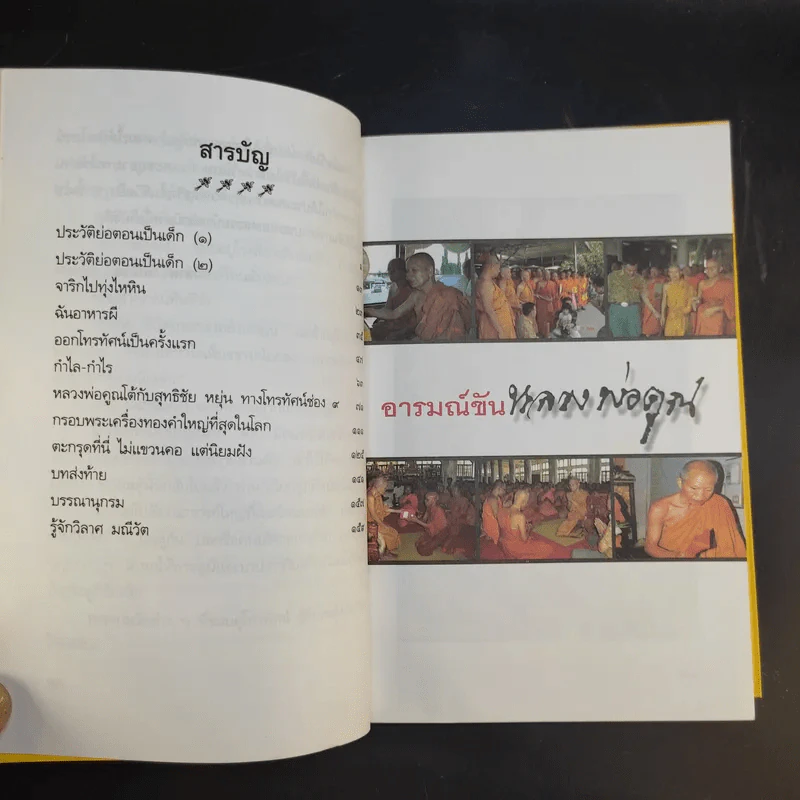 สารบัญ
ประวัติย่อตอนเป็นเด็ก (๑)
ประวัติย่อตอนเป็นเด็ก (๒)
จาริกไปทุ่งไหหิน
ฉันอาหารผี
ออกโทรทัศน์เป็นครั้งแรก
กำไล-กำไร
หลวงพ่อคูณโต้กับสุทธิชัย หยุ่น ทางโทรทัศน์ช่อง ๙
กรอบพระเครื่องทองคำใหญ่ที่สุดในโลก
ตะกรุดที่นี่ ไม่แขวนคอ แต่นิยมฝัง
บทส่งท้าย
บรรณานุกรม
รู้จักวิลาศ มณีวัต
อารมณ์ขัน หลวงพ่อคูณ